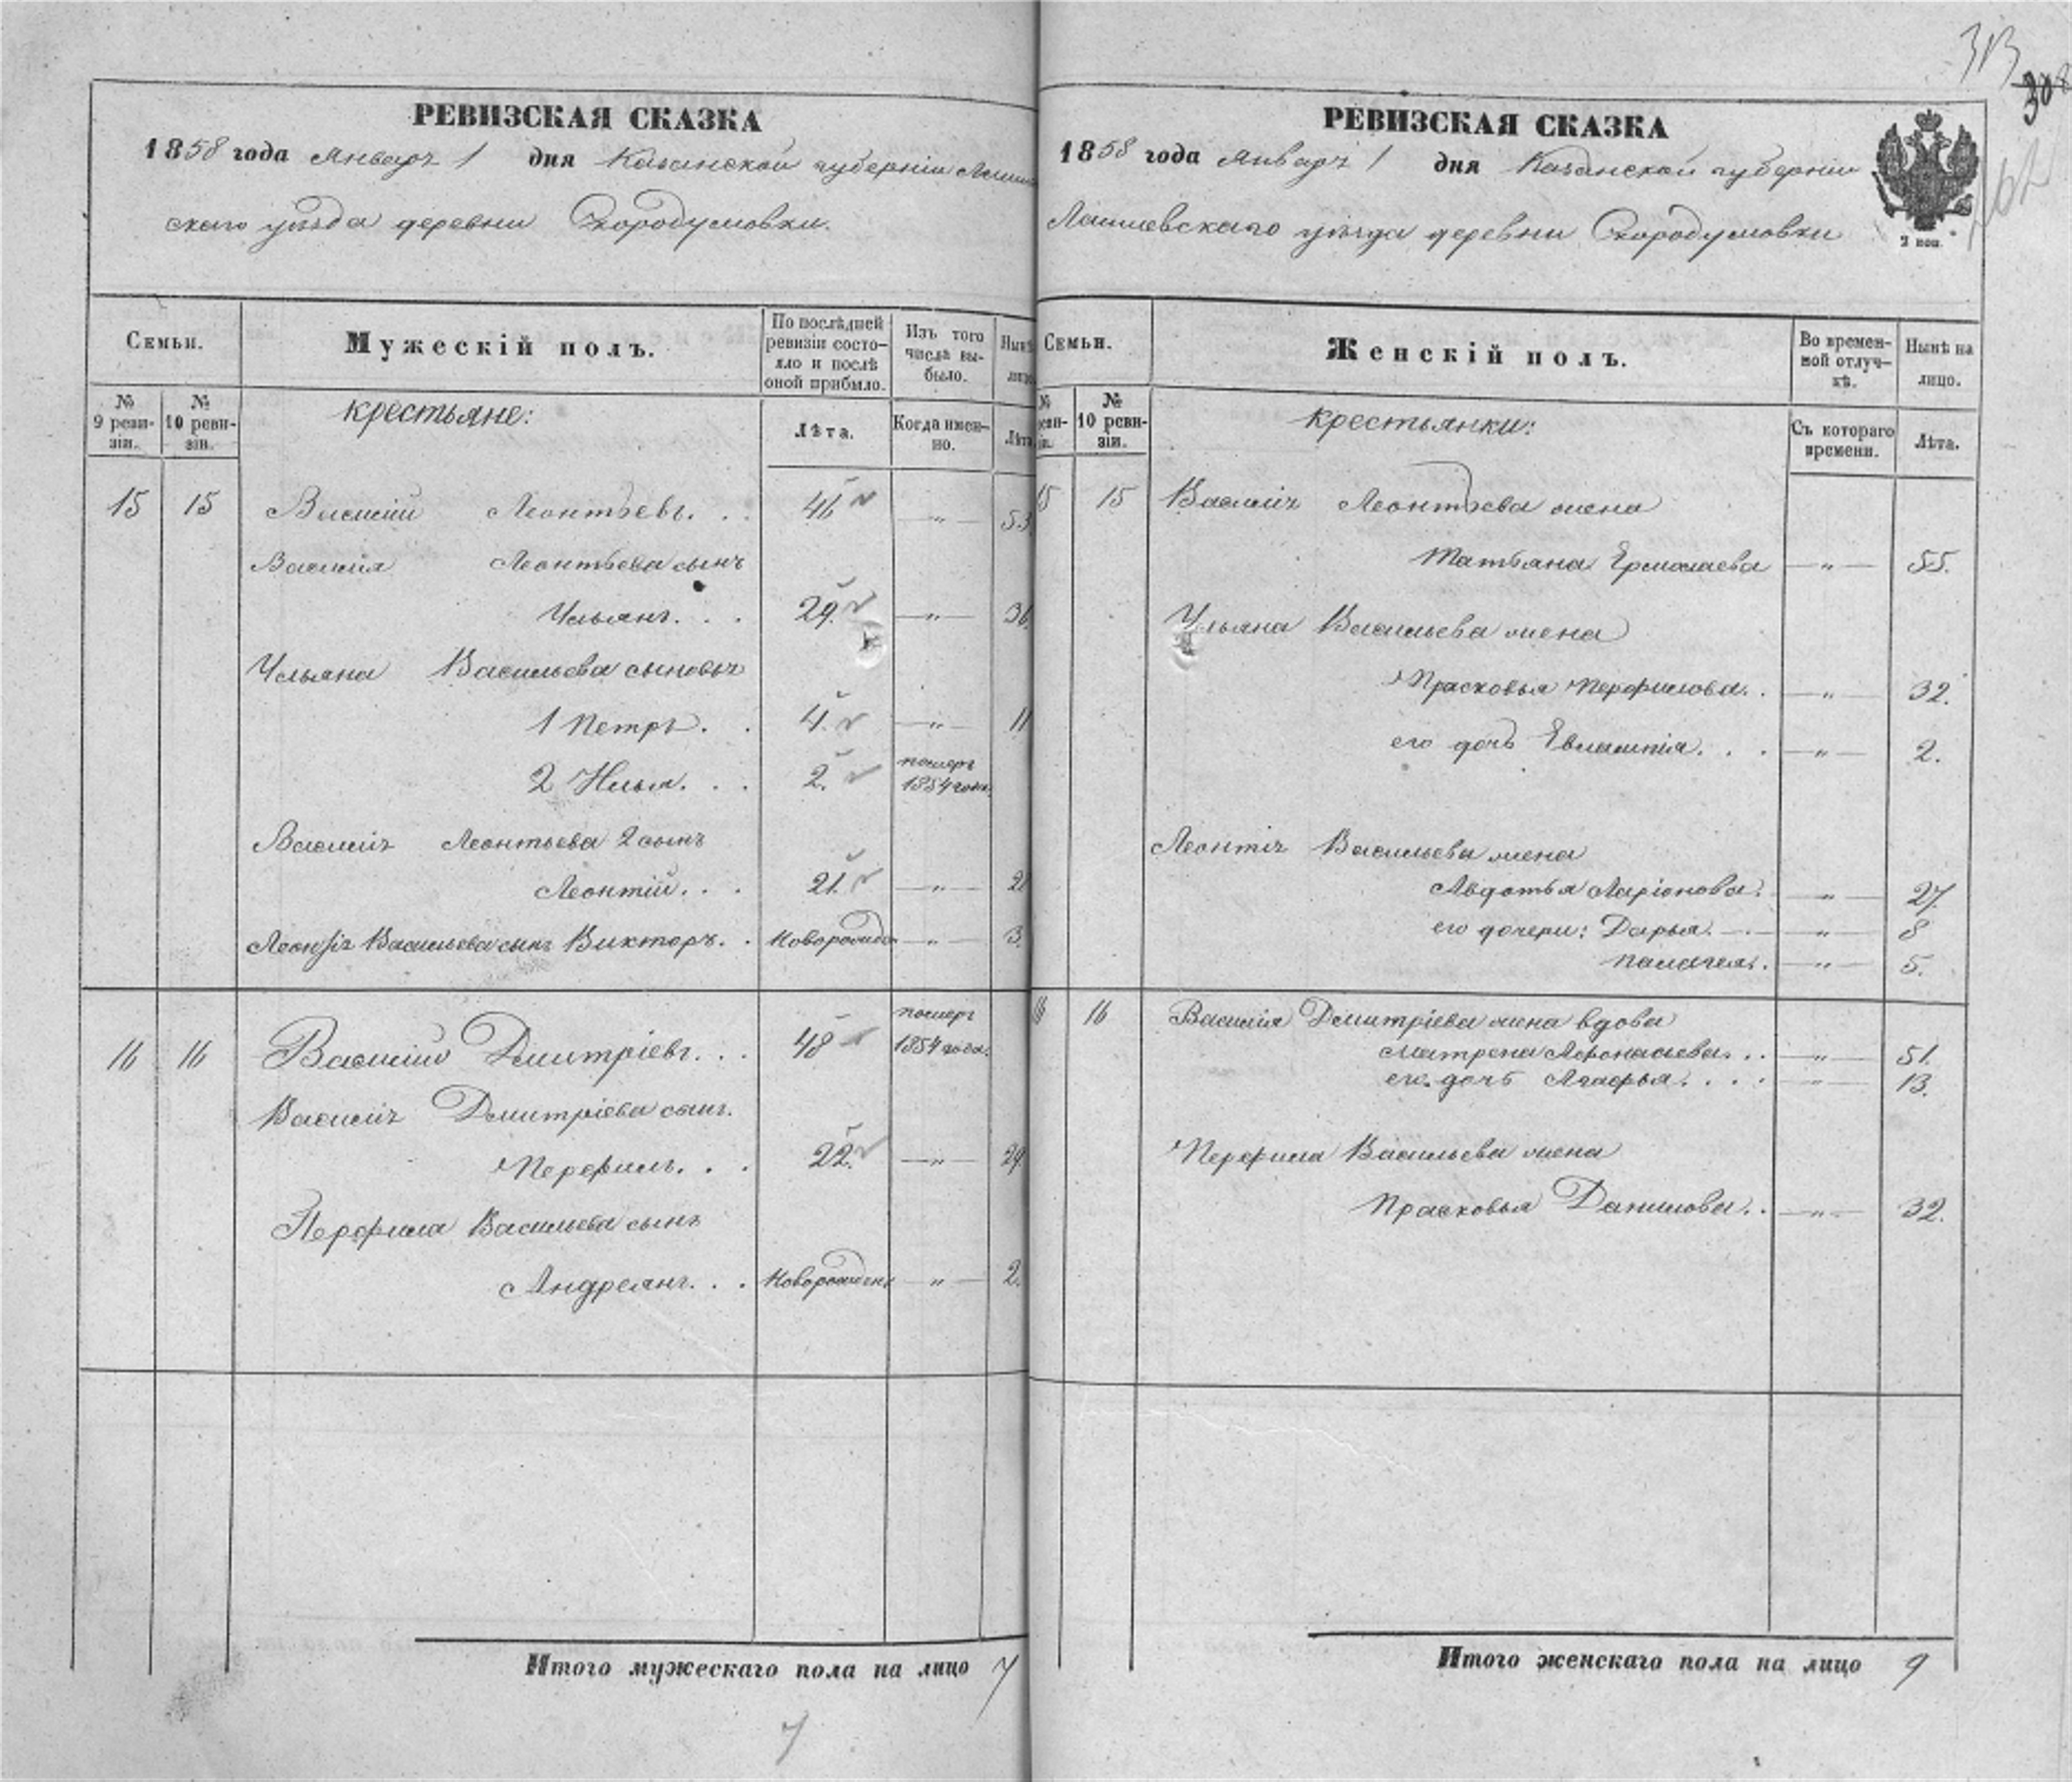 313
308
РЕВИЗСКАЯ СКАЗКА
1858 года Января 1 дня Казанской губерніи Лаише
скаго уѣзда деревни Скородумовки.
Семьи.
Мужескій полъ.
По послѣдней ревизіи состояло и послѣ оной прибыло.
Изъ того числа выбыло.
Нынѣ на лицо
№ 9 ревизіи.
№ 10 ревизіи.
крестьяне:
Лѣта.
Когда именно.
Лѣта
15 15 Василій Леонтьевъ. . . 46 — „ — 53
Василія Леонтьева сынъ
Ульянъ. . . 29. — „ — 36.
Ульяна Васильева сыновья
1 Петръ. . 4. — „ — 11
2 Илья. . . 2. померъ 1854 года.
Василія Леонтьева 2 сынъ
Леонтій. . . 21. — „ — 2
Леонтія Васильева сынъ Викторъ. . Новорожден — „ — 3.
16 16 Василій Дмитріевъ. . . 48 померъ 1854 года.
Василія Дмитріева сынъ.
Перфилъ. . . 22. — „ — 29.
Перфила Васильева сынъ
Андреянъ. . . Новорожден — „ — 2.
Итого мужескаго пола на лицо 7
7
РЕВИЗСКАЯ СКАЗКА
1858 года Января 1 дня Казанской губерніи
Лаишевскаго уѣзда деревни Скородумовки
2 коп.
Семьи.
Женскій полъ.
Во временной отлучкѣ.
Нынѣ на лицо.
№ реви-зіи.
№ 10 ревизіи.
крестьянки:
Съ котораго времени.
Лѣта.
15 15 Василія Леонтьева жена
Татьяна Ермолаева — „ — 55.
Ульяна Васильева жена
Прасковья Перфилова. . — „ — 32.
его дочь Евлампія. . . — „ — 2.
Леонтія Васильева жена
Авдотья Ларіонова. — „ — 27.
его дочери: Дарья. — „ — 8
Пелагея. — „ — 5.
16 16 Василія Дмитріева жена вдова
Матрена Афонасьева. . . — „ — 51.
его дочь Агафья. . . . — „ — 13.
Перфила Васильева жена
Прасковья Данилова. . — „ — 32.
Итого женскаго пола на лицо 9